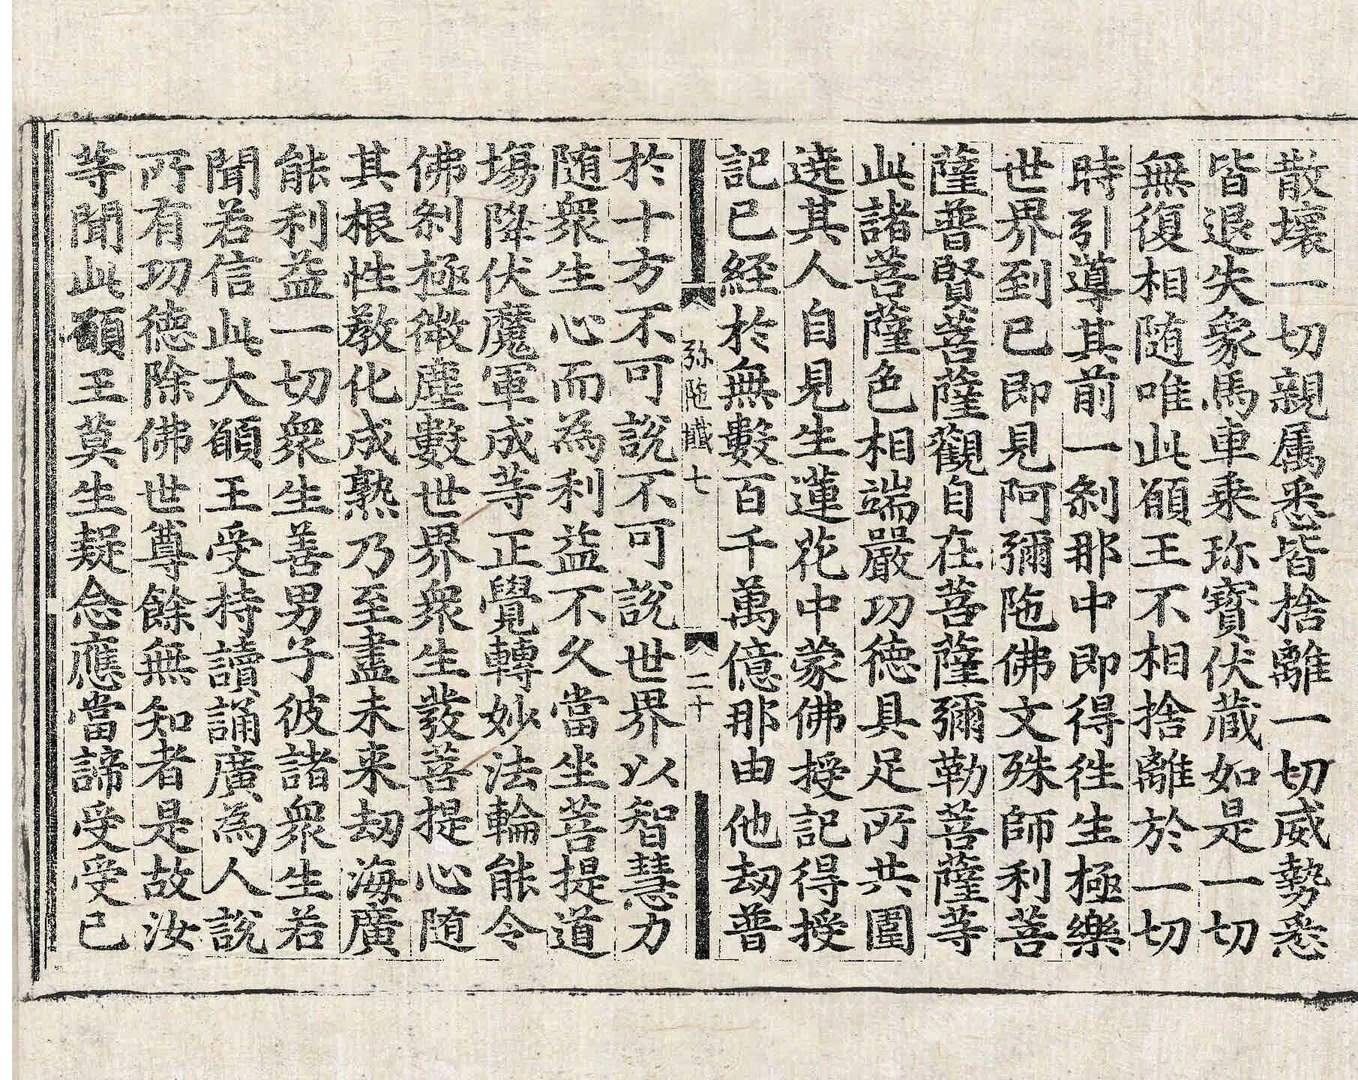 散壞一切親属悉皆捨離一切威勢悉
皆退失象馬車乘珎寳伏蔵如是一切
無復相随唯此願王不相捨離於一切
時引導其前一刹那中即得徃生極樂
世界到已即見阿彌陁佛文殊師利菩
薩普賢菩薩觀自在菩薩彌勒菩薩等
此諸菩薩色相端嚴功德具足所共圍
遶其人自見生蓮花中蒙佛授記得授
記已經於無數百千萬億那由他劫普
弥陁懴七
二十
於十方不可說不可說世界以智慧力
随衆生心而為利益不久當坐菩提道
塲降伏魔軍成等正覺轉妙法輪能令
佛刹極微塵數世界衆生發菩提心随
其根性教化成熟乃至盡未来劫海廣
能利益一切衆生善男子彼諸衆生若
聞若信此大願王受持讀誦廣為人說
所有功德除佛世尊餘無知者是故汝
等聞此願王莫生疑念應當諦受受已